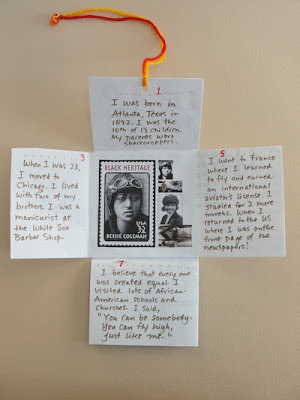 1
I was born in
Atlanta, Texas in
1892. I was the
10th of 13 children.
My parents were
sharecroppers.
3
When I was 23,
I moved to
Chicago. I lived
with two of my
brothers. I was a
manicurist at
the White Sox
Barber Shop.
BLACK HERITAGE
USA
32
BESSIE COLEMAN
5
I went to France
where I learned
to fly and earned
an international
aviator's license. I
studied for 2 more
months. When I
returned to the US
I was on the
front page of the
newspapers!
7
I believe that every one
was created equal. I
visited lots of African-
American schools and
Churches. I said,
"You can be somebody.
You can fly high,
just like me."